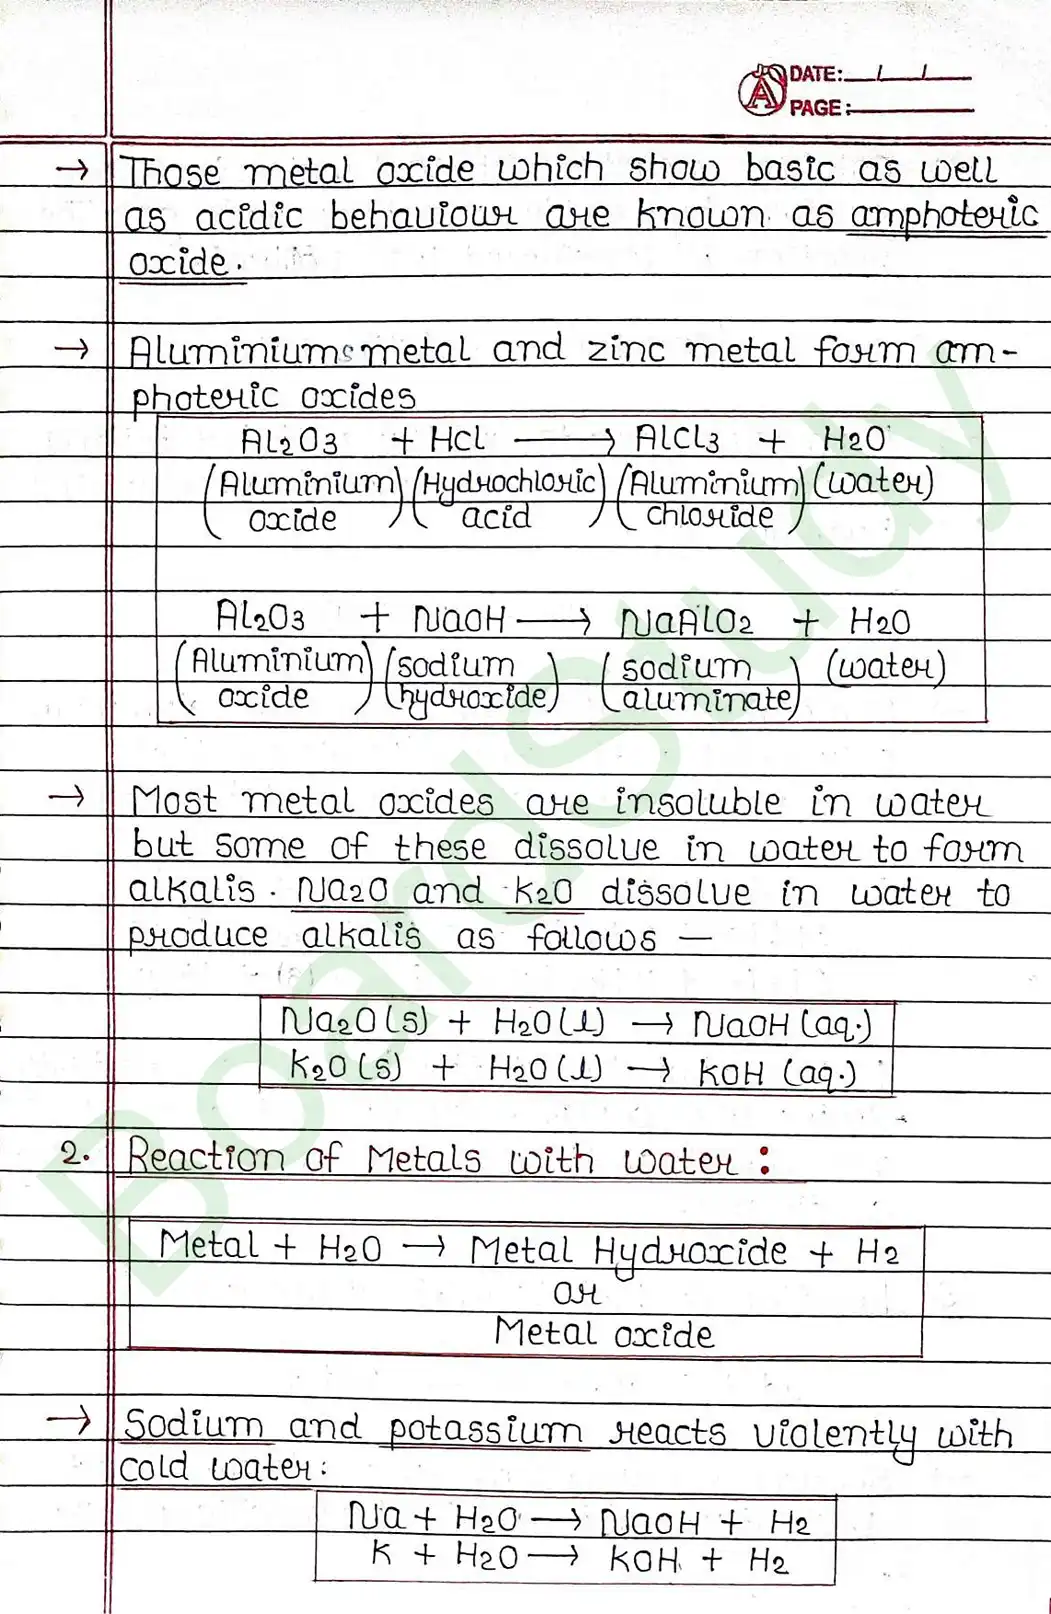 DATE: / /
PAGE:
→ Those metal oxide which show basic as well
as acidic behaviour are known as amphoteric
oxide.
→ Aluminium metal and zinc metal form am-
photeric oxides
Al2O3 + HCl → AlCl3 + H2O
(Aluminium oxide) (Hydrochloric acid) (Aluminium chloride) (water)
Al2O3 + NaOH → NaAlO2 + H2O
(Aluminium oxide) (sodium hydroxide) (sodium aluminate) (water)
→ Most metal oxides are insoluble in water
but some of these dissolve in water to form
alkalis. Na2O and K2O dissolve in water to
produce alkalis as follows —
Na2O(s) + H2O(l) → NaOH (aq.)
K2O(s) + H2O(l) → KOH (aq.)
2. Reaction of Metals with water :
Metal + H2O → Metal Hydroxide + H2
or
Metal oxide
→ Sodium and potassium reacts violently with
cold water:
Na + H2O → NaOH + H2
K + H2O → KOH + H2
BoardStudy